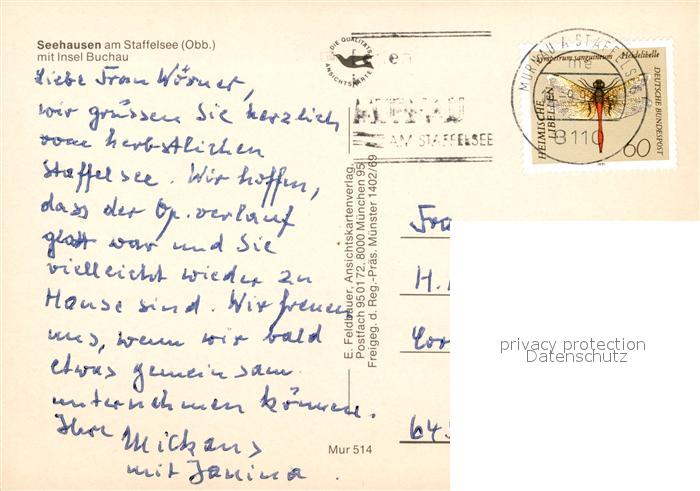 Seehausen am Staffelsee (Obb.)
mit Insel Buchau
Liebe Frau Wörner,
wir grüssen Sie herzlich
vom herbstlichen
Staffelsee. Wir hoffen,
dass der Op.verlauf
glatt war und Sie
vielleicht wieder zu
Hause sind. Wir freuen
uns, wenn wir bald
etwas gemeinsam
unternehmen können.
Ihre Mickans
mit Janina.
DIE QUALITÄTS
ANSICHTSKARTE
MURNAU
AM STAFFELSEE
MURNAU A. STAFFELSEE
8110
Sympetrum sanguineum Heidelibelle
HEIMISCHE
LIBELLEN
DEUTSCHE BUNDESPOST
60
E. Feldbauer, Ansichtskartenverlag,
Postfach 950172, 8000 München 95
Freigeg. d. Reg.-Präs. Münster 1402/69
Mur 514
Frau
H.
645
privacy protection
Datenschutz